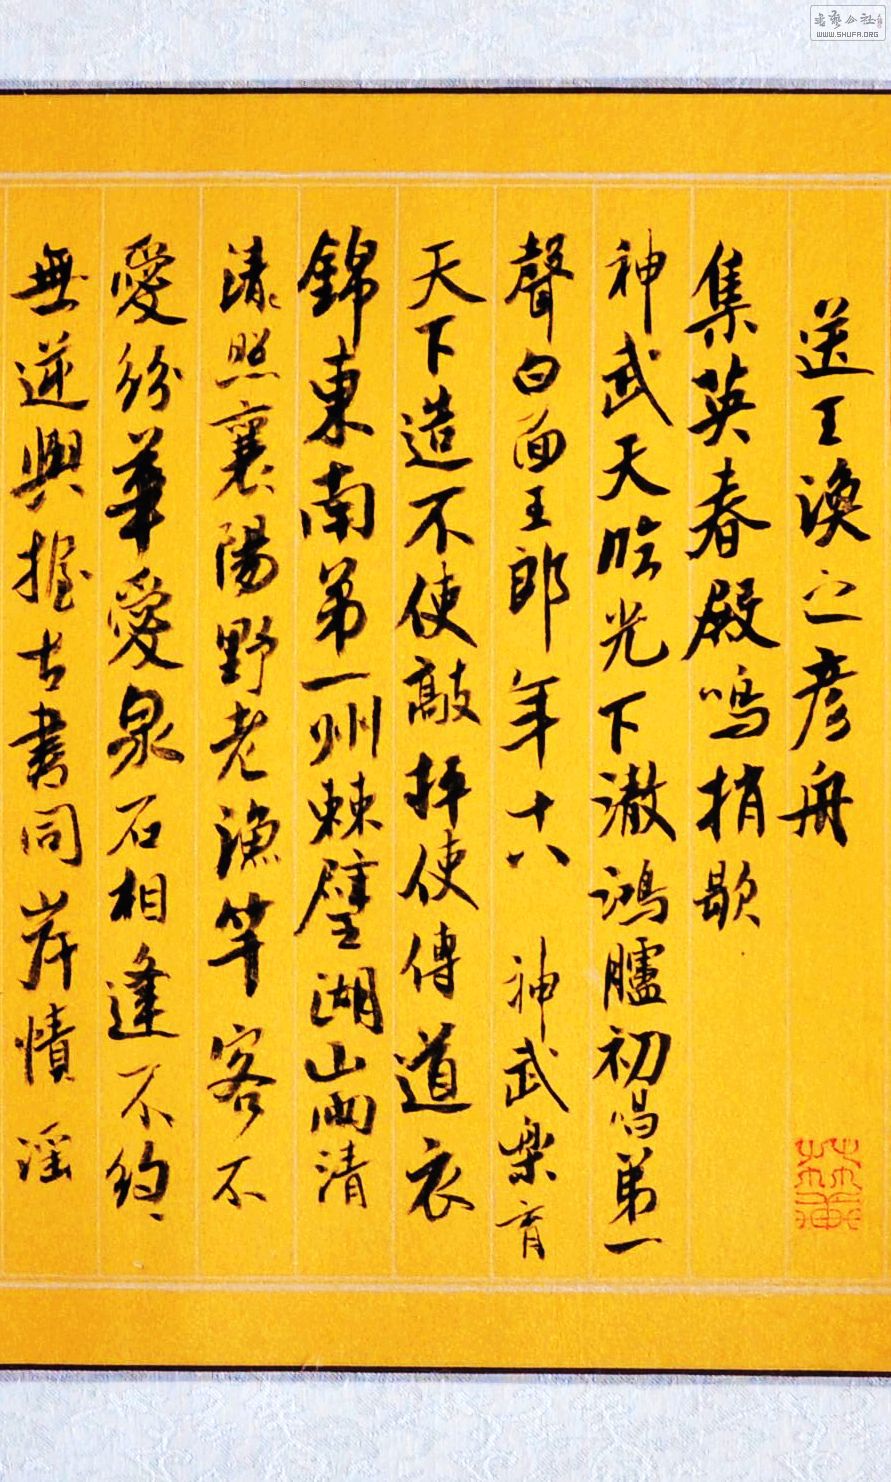 送王渙之彥舟
集英春殿鳴捎歇
神武天臨光下澈鴻臚初唱第一
聲白面王郎年十八 神武樂育
天下造不使敲抨使傳道衣
錦東南第一州棘璧湖山兩清
照襄陽野老漁竿客不
愛紛華愛泉石相逢不約
無逆與握古書同岸幘淫
書藝公社
WWW.SHUFA.ORG